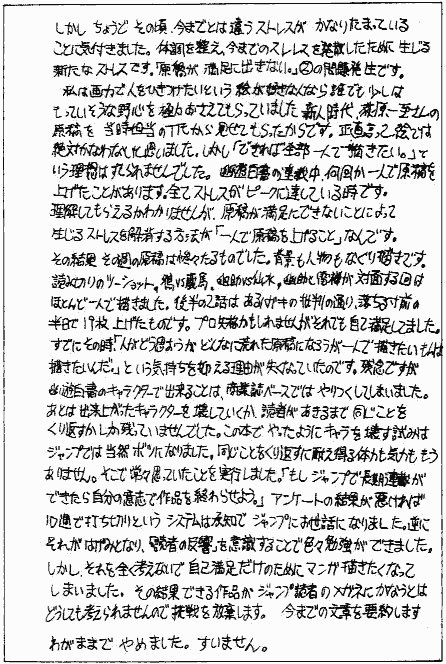 しかし ちょうど その頃、今までとは違うストレスが かなりたまっている
ことに気付きました。体調を整え、今までのストレスを発散したために生じる
新たなストレスです。「原稿が 満足に出きない。」②の問題発生です。
私は画力で人をひきつけたいという 絵が好きな人なら誰でも少しは
もっていそうな野心を極力おさえてもらっていました。新人時代、萩原一至さんの
原稿を 当時担当のTたから見せてもらったからです。正直言って絵では
絶対かなわないと思いました。しかし「できれば全部一人で描きたい。」と
いう理想はすてられませんでした。幽遊白書の連載中、何回か一人で原稿を
上げたことがあります。全てストレスがピークに達している時です。
理解してもらえるかわかりませんが、原稿が満足にできないことによって
生じるストレスを解消する方法が「一人で原稿を上げること」なんです。
その結果 その週の原稿は惨々たるものでした。背景も人物もなぐり描きです。
読みきりのツーショット。鴉vs蔵馬。幽助vs仙水。幽助と雷禅が対面する回は
ほとんど一人で描きました。後半の2話は あるハガキの批判の通り、落ちる寸前の
半日で19枚上げたものです。プロ失格かもしれませんがそれでも自己満足してました。
すでにその時、「人がどう思おうが どんなに荒れた原稿になろうが一人で描きたいもんは
描きたいんだ。」という気持ちを抑える理由が失くなっていたのです。残念ですが
幽遊白書のキャラクターで出来ることは、商業誌ベースでは やりつくしてしまいました。
あとは 出来上がったキャラクターを壊していくか、読者があきるまで同じことを
くり返すかしか残っていませんでした。この本で やったようにキャラを壊す試みは
ジャンプでは当然ボツになりました。同じことをくり返すに耐え得る体力も気力もう
ありません。そこで常々思っていたことを実行しました。「もし ジャンプで長期連載が
できたら自分の意志で作品を終わらせよう。」アンケートの結果が悪ければ
10週で打ち切りという システムは承知で ジャンプにお世話になりました。逆に
それが はげみとなり、「読者の反響」を意識することで色々勉強ができました。
しかし、それを全く考えないで 自己満足だけのためにマンガ描きたくなって
しまいました。その結果できる作品が ジャンプ読者のメガネにかなうとは
どうしても考えられませんので挑戦を放棄します。 今までの文章を要約します
わがままで やめました。すいません。